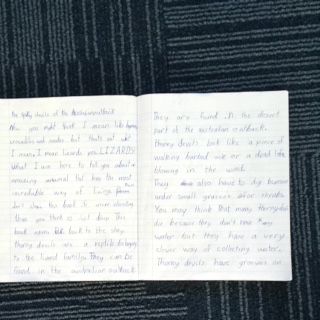 The spiky devils of the Australian outback
Now you might think I mean like
crocodiles and snakes but thats not what
I mean. I mean lizards yes LIZARDS!
What I am here to tell you about is
amazing animal that has the most
incredable way of living
But when this book is more
than you think so just keep this
book open back to the story.
Thorny devils are a reptile belonging
to the lizard family. They can be
found in the australian outback
They are found in the desert
part of the australian outback.
Thorny devils look like a piece of
walking barbed wire or a dead
blowing in the wind.
They also have to dig burrows
under small grasses or shrubs.
You may think that many thorny devils
die because they don't have
water but they have a very
clever way of collecting water.
Thorny devils have grooves on